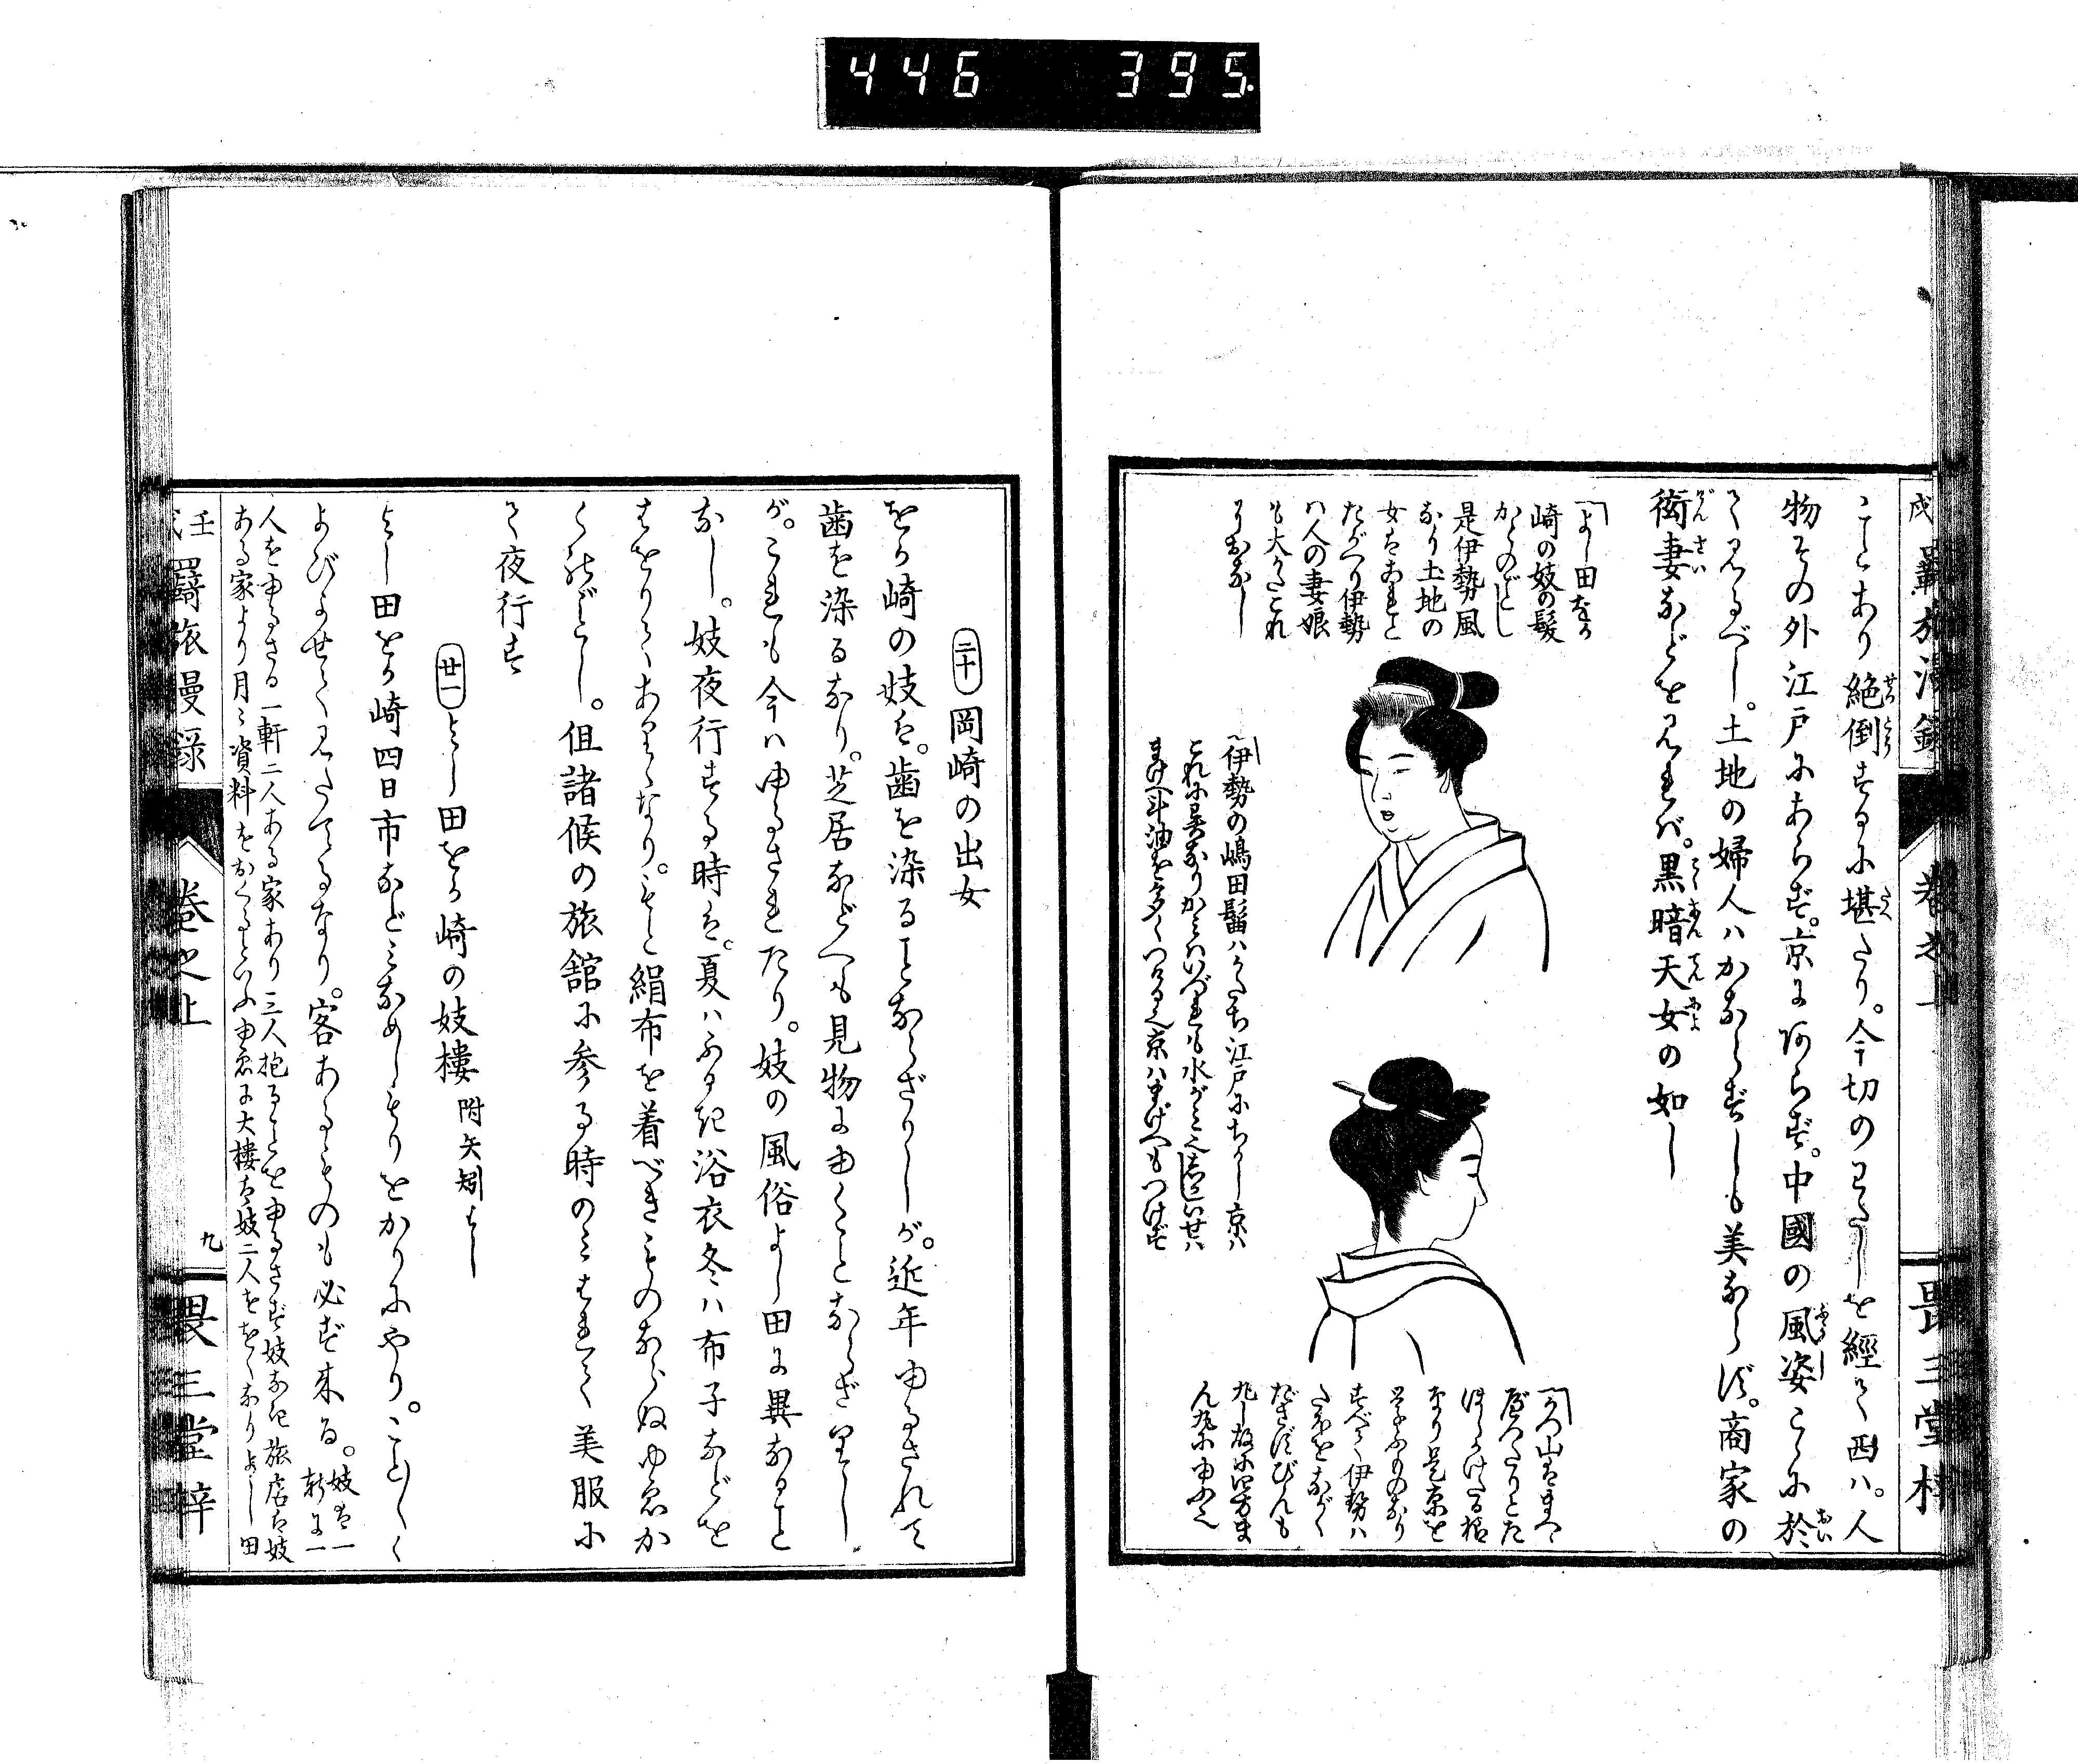 446 395.
ことあり絶倒するに堪たり。今切のわたしを經て西ハ。人
物その外江戸にあらず。京にあらず。中國の風姿こゝに於
て見るべし。土地の婦人ハかならずしも美ならず。商家の
衒妻などを見れバ。黒暗天女の如し
よし田をか
崎の妓の髪
かくのごとし
是伊勢風
なり土地の
女はこれと
たがへり伊勢
ハ人の妻娘
も大かたこれ
におなし
伊勢の嶋田髷ハかたち江戸にちかし京ハ
これに異なりかみハいづれも水がみ也
まけへ斗油を多くつける也京ハまげへもつけず
すべて伊勢ハ
たぼをながく
二十 岡崎の出女
をか崎の妓は。歯を染ることならざりしが。近年ゆるされて
歯を染るなり。芝居などへも見物にゆくことならざりし
が。これも今ハゆるされたり。妓の風俗よし田に異なること
なし。妓夜行する時は。夏ハふるき浴衣冬ハ布子などを
はをりてあるくなり。もと絹布を着べきものならぬゆゑか
くのごとし。但諸候の旅舘に参る時のみはれて美服に
て夜行す
廿一 よし田をか崎の妓樓 附矢矧はし
よし田をか崎四日市などみなめしもりをかりにやり。こと〴〵く
よびよせて見たてるなり。客あるものも必ず来る。妓は一軒に一
人をゆるさる一軒二人ある家あり三人抱ることをゆるさず妓なき旅店は妓
ある家より月〻資料をおくるといふゆゑに大樓は妓二人ををくなりよし田
壬戌羇旅漫録 巻之上 九 畏三堂梓